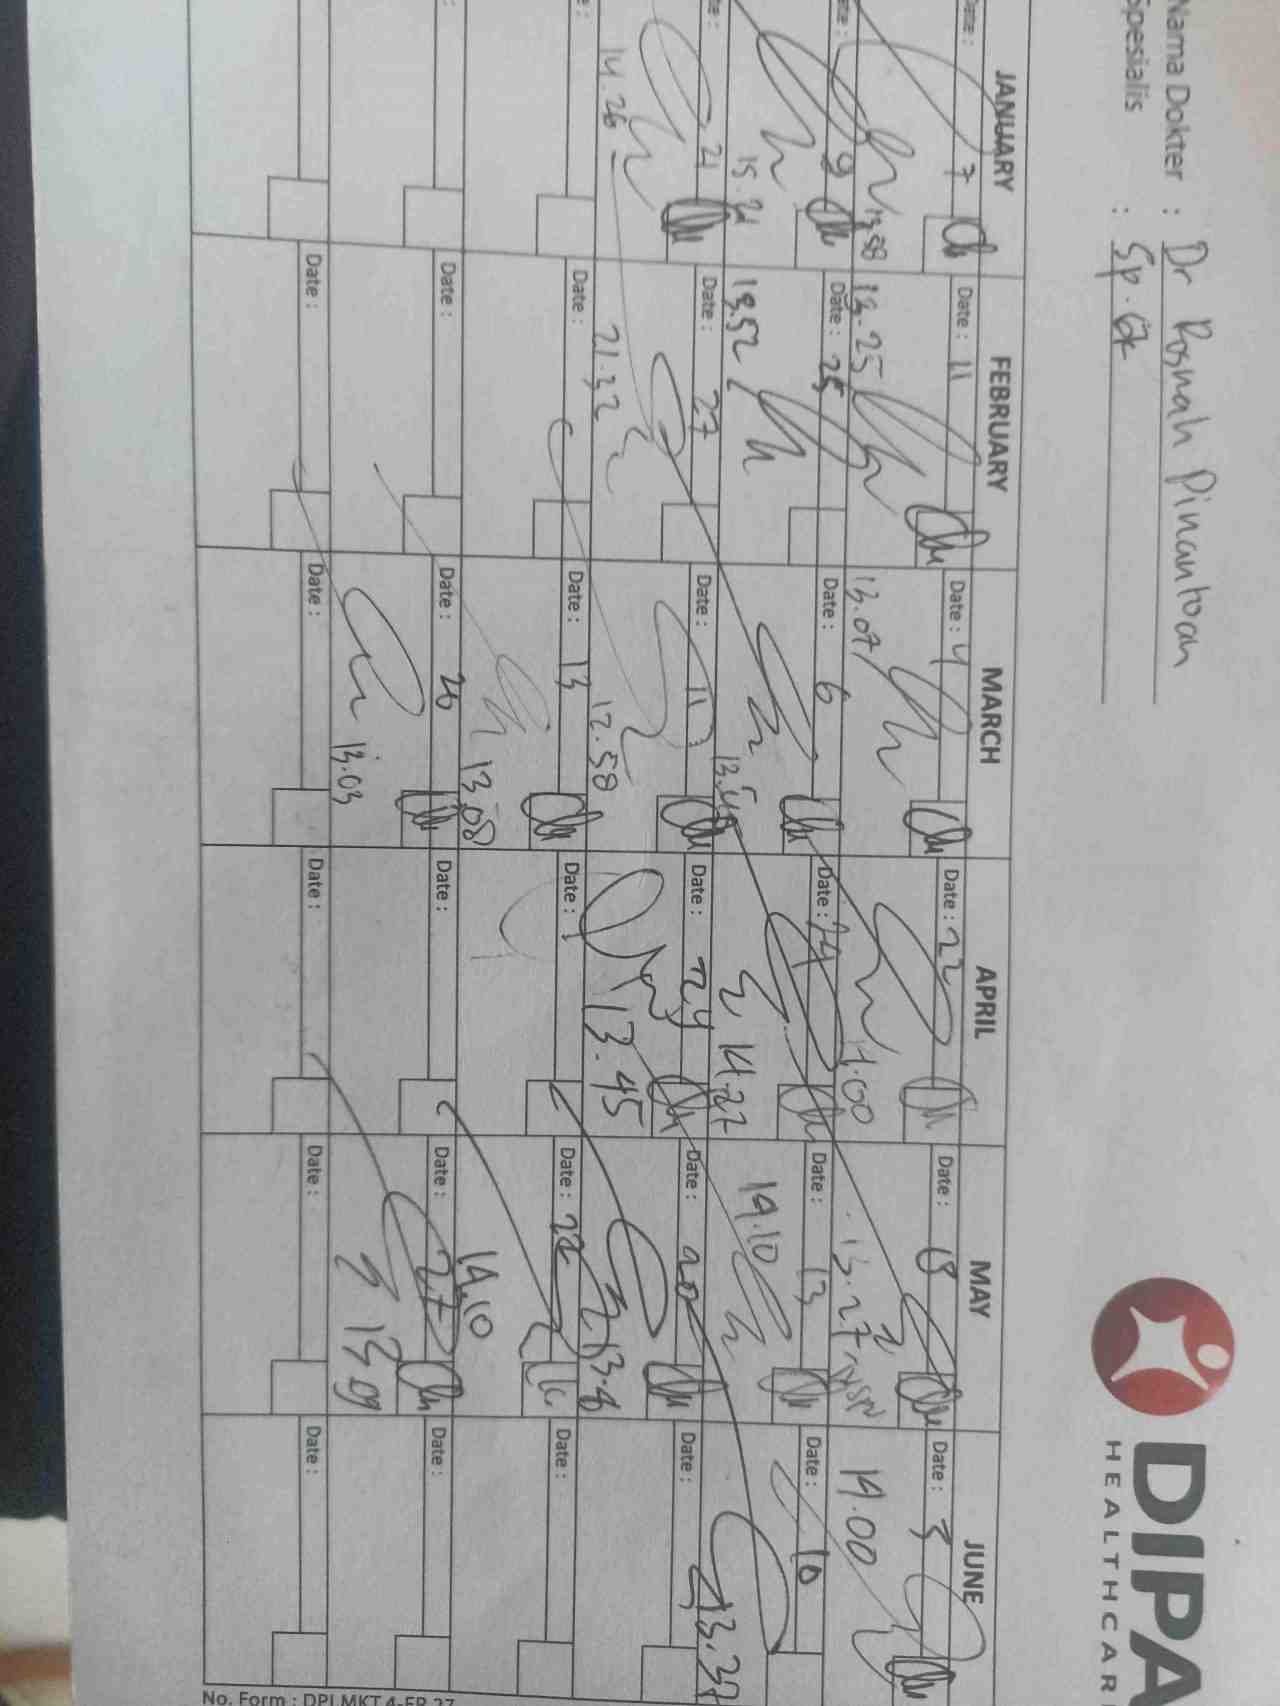 DIPA
HEALTHCAR
Nama Dokter : Dr Rosnah Pinantoan
Spesialis : Sp. GK
JANUARY FEBRUARY MARCH APRIL MAY JUNE
Date : 7 Date : 11 Date : 4 Date : 22 Date : Date : 3
13.25 13.07 13.27 14.00
Date : 9 Date : 25 Date : 6 Date : 24 Date : 13 Date : 10
15.21 13.52 14.27 14.10 13.37
Date : 21 Date : 27 Date : 11 Date : 29 Date : 20 Date :
14.26 21.32 12.58 13.45
Date : Date : Date : 13 Date : Date : 22 Date :
13.08 14.10
Date : Date : Date : 26 Date : Date : 27 Date :
13.03 13.09
Date : Date : Date : Date : Date : Date :
No. Form : DPI.MKT.4-FR.27